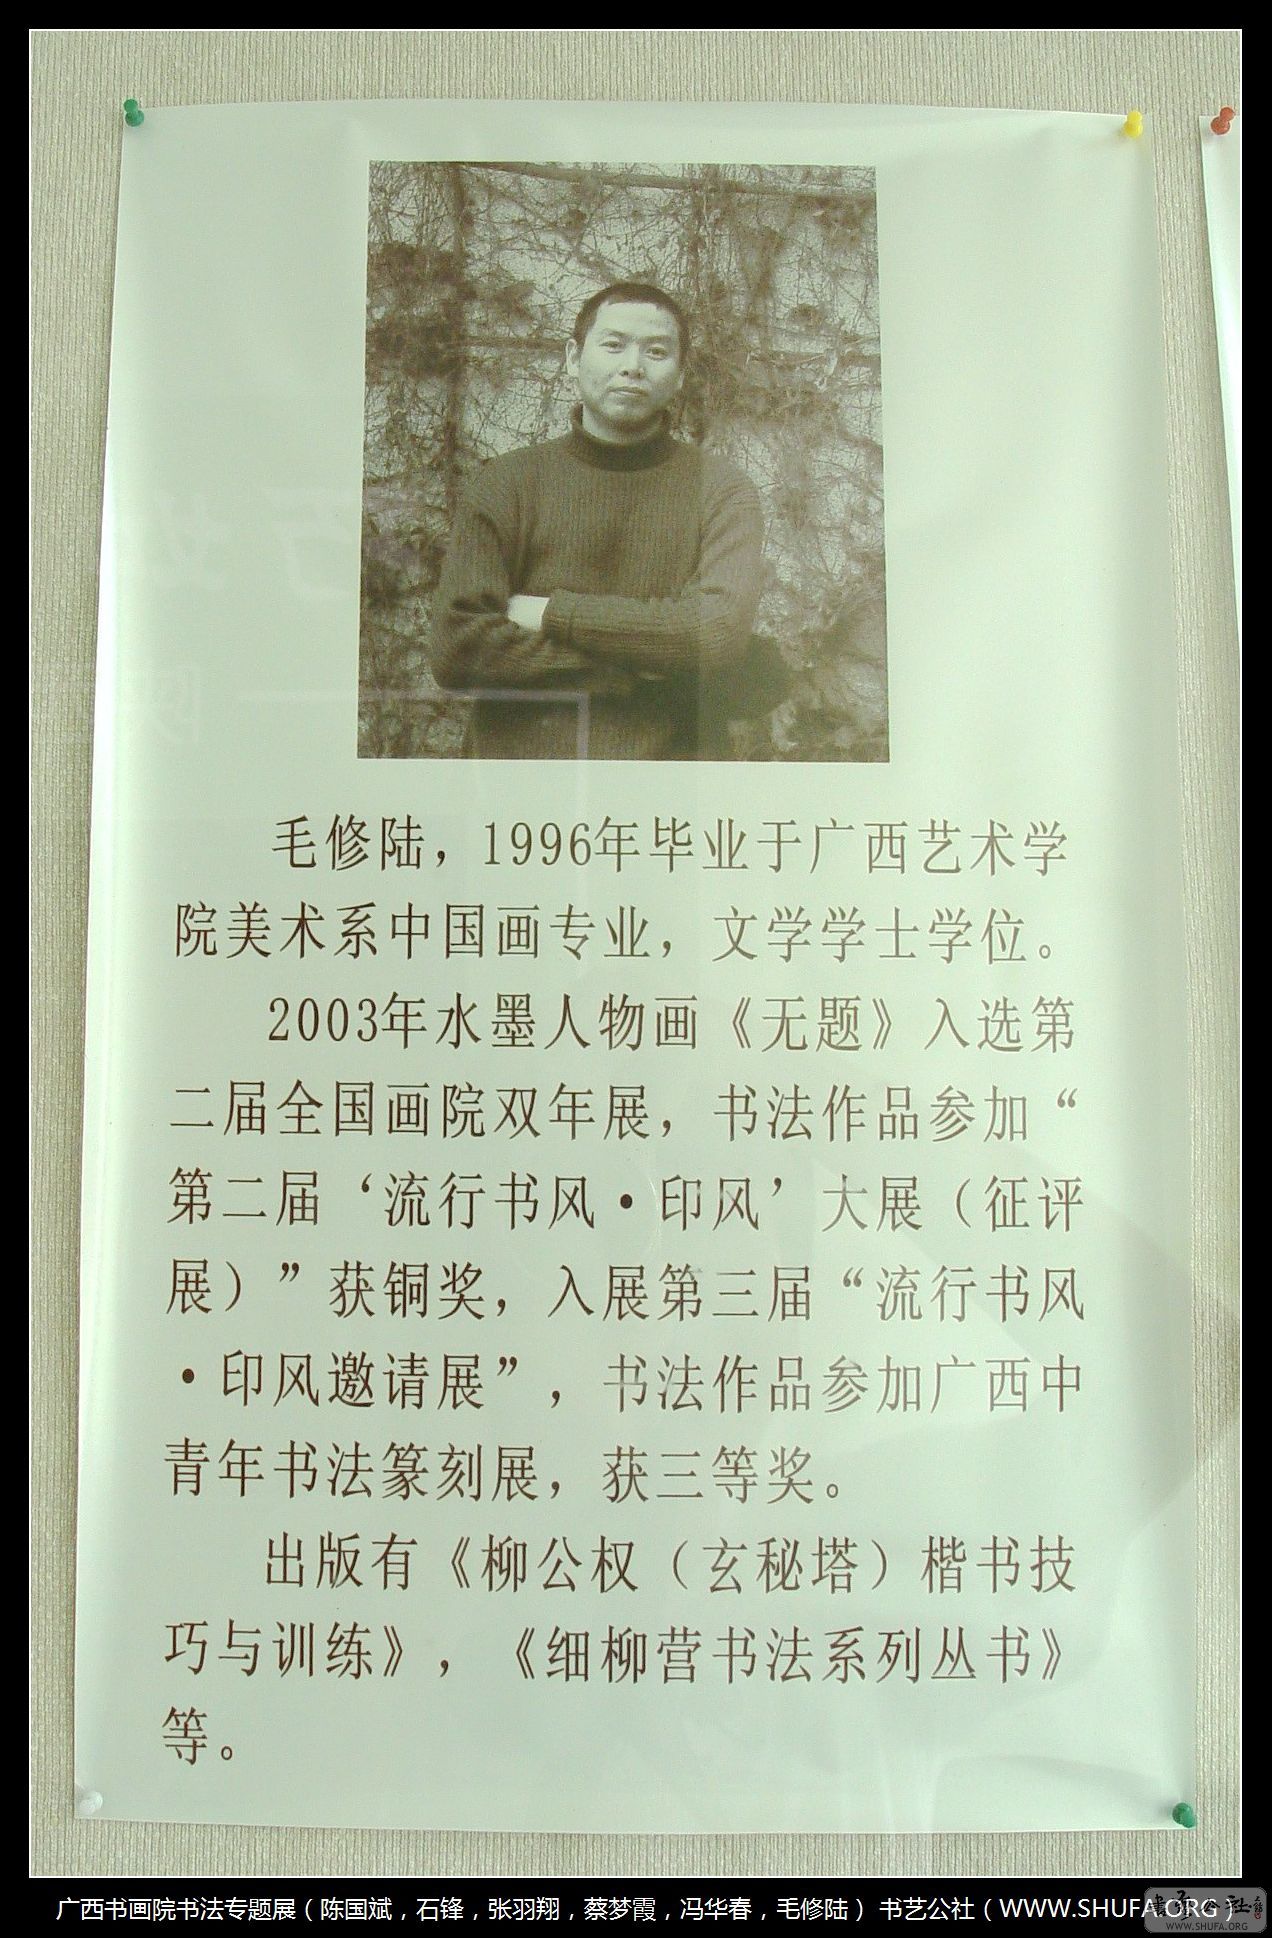 毛修陆，1996年毕业于广西艺术学
院美术系中国画专业，文学学士学位。
2003年水墨人物画《无题》入选第
二届全国画院双年展，书法作品参加“
第二届‘流行书风·印风’大展（征评
展）”获铜奖，入展第三届“流行书风
·印风邀请展”，书法作品参加广西中
青年书法篆刻展，获三等奖。
出版有《柳公权（玄秘塔）楷书技
巧与训练》，《细柳营书法系列丛书》
等。
广西书画院书法专题展（陈国斌，石锋，张羽翔，蔡梦霞，冯华春，毛修陆） 书艺公社（WWW.SHUFA.ORG）
書藝公社
WWW.SHUFA.ORG